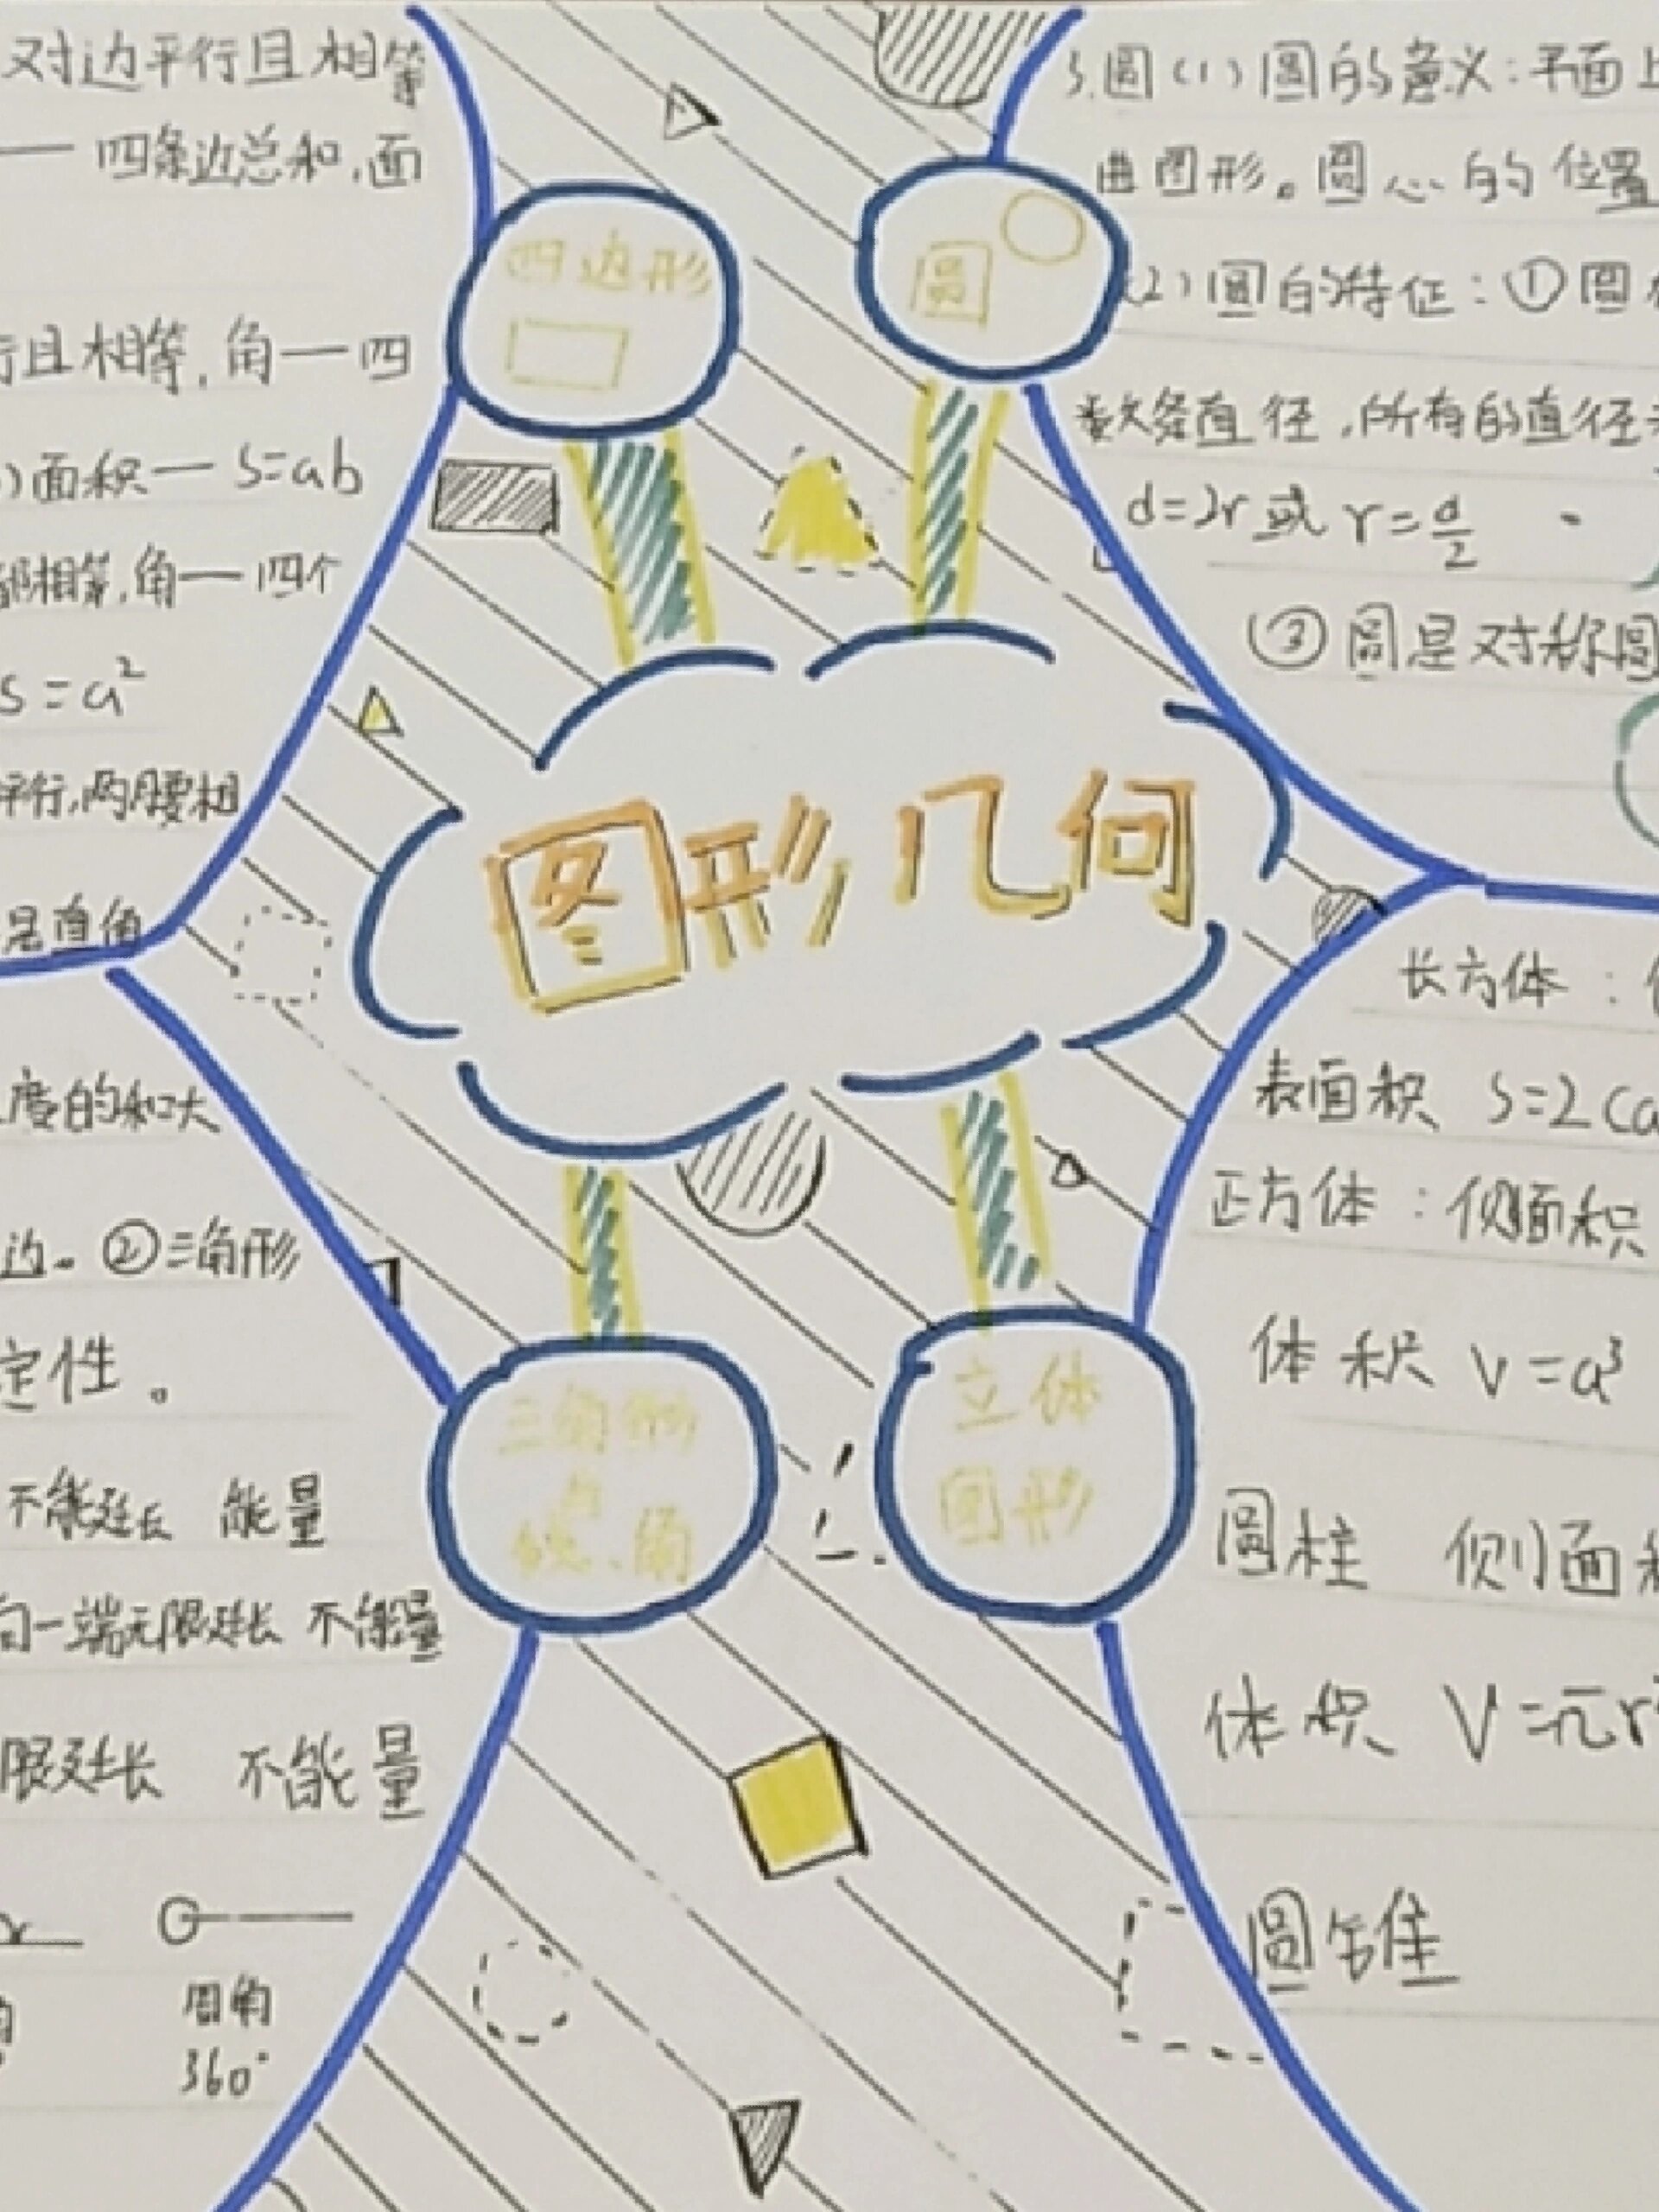 对边平行且相等
四条边总和,面
行且相等,角一四
面积一 S=ab
都相等,角一四个
S=a²
平行,两腰相
是直角
四边形
3.圆(1)圆的意义:平面上
曲图形。圆心的位置
(2)圆的特征:①圆
数条直径,所有的直径
d=2r或r=d/2
③圆是对称圆
圆
图形几何
度的和大
边。②三角形
定性。
不能延长 能量
向一端无限延长 不能量
限延长 不能量
周角
360°
三角形
线、角
立体
图形
长方体:
表面积 S=2(a
正方体:侧面积
体积 V=a³
圆柱 侧面积
体积 V=πr
圆锥